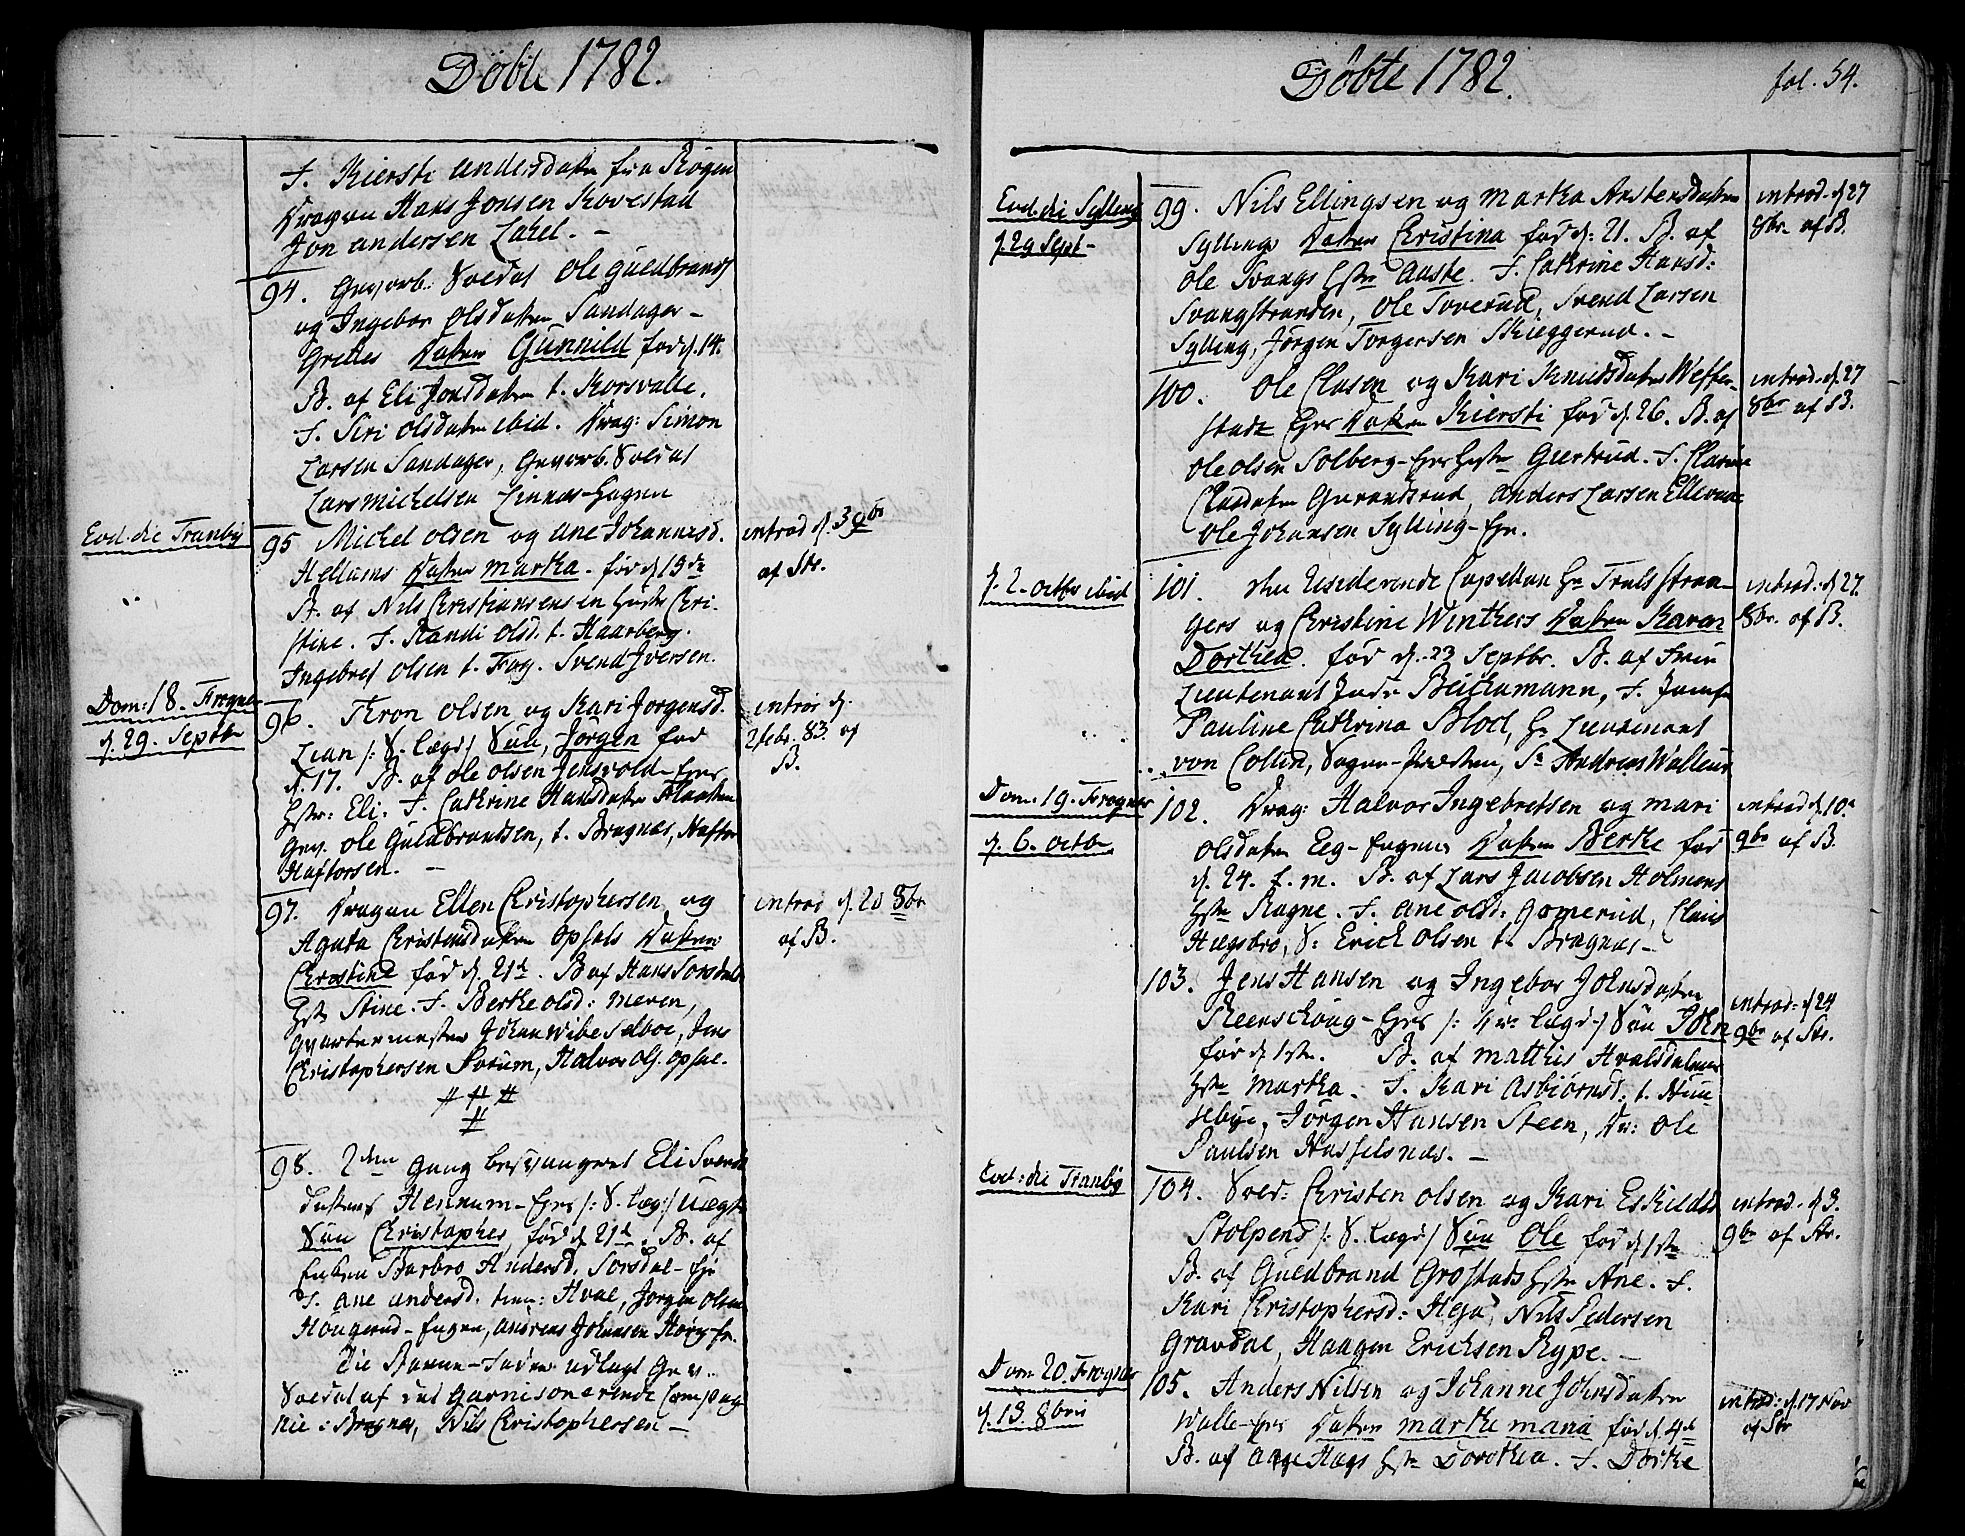 Döbte 1782.
F. Kiersti Andersdaten fra Røgen
Dragun Hans Jonsen Kovestad
Jon Andersen Lahel. –
94. Gevorb. Soldat Ole Guldbrands
og Ingebor Olsdaten Sandager–
Grettes Daten Gunnild fød d. 14.
B. af Eli Jonsdaten t. Korsvalle.
F. Siri Olsdaten ibid. Drag: Simon
Larsen Sandager, Gevorb. Soldat
Lars Michelsen Linnes-Hagen
Eod. die Tranby
95 Michel Olsen og Ane Johannesd.
Hellums Daten Martha. fød d 19de
B. af Nils Christiansens en Hustr Chri-
stine. F. Randi Olsd. t. Haarberg.
Ingebret Olsen t. Frog. Svend Iversen.
introd d. 3 9br
af Str.
Dom: 18. Frogner
d. 29. Septbr
96. Thron Olsen og Kari Jorgensd.
Lian /: S. Lægd/ Søn, Jørgen fød
d. 17. B. af Ole Olsen Jensvold-Ejes
Hstr: Eli. F. Cathrine Hansdaten
Gev. Ole Guldbrandsen, t. Bragnæs, Haftor
Haftorsen. –
introd d.
2 febr. 83. af
B.
97. Dragun Ellen Christophersen og
Agata Christensdaten Opsals Daten
Christine fød d. 21de. B af Hans Sorsdals
Hst. Stine. F. Berthe Olsd: Meren,
Qvartermester Johan Wibe Selboe, Jens
Christophersen Sorum, Halvor Ols. Opsal.
introd d. 20 8br
af B.
98. 2den Gang besvangret Eli Svends
datens Hennum-Ejes /: S. Læg:/ Uægte
Søn Christopher, fød d 21de. B. af
Enken Barbro Andersd. Sorsdal-Eje
F. Ane Andersd. Hval, Jorgen Olsen
Hougerud-Engen, Andreas Johansen Horn-Ej.
Die Barne-Fader udlagt Gev.
Soldat af det Garnisonerende Compag
nie i Bragnes, Nils Christophersen –
Döbte 1782.
fol. 54.
Eod. die Sylling
d. 29 Sept–
99. Nils Ellingsen og Martha Anstensdaten
Syllings Daten Christina fød d: 21. B. af
Ole Svangs Hstr Aaste. F. Cathrine Hansd:
Svangstranden, Ole Soverud, Svend Larsen
Sylling, Jörgen Torgersen Skieggerud. –
introd. d 27
8br af B.
100. Ole Clasen og Kari Knudsdaten Weffer-
stads Ejes Daten Kiersti fød d. 26. B. af
Ole Olsen Solberg-Ejes Hstr Giertrud. F.
Clasdaten Gurandsrud, Anders Larsen
Ole Johansen Sylling-Eje.
introd. d. 27
8br af B.
d. 2. Octbr ibid
101. Den Residerende Capellan Hr Truls Stran-
gers og Christine Winthers Daten Karen
Dorthea. fød d. 23 Septbr. B. af Frue
Lieutenant Bachmann, F. Jomfr
Pauline Cathrina Bloch, Hr Lieutenant
von Collin, Sogne-Præsten, Sr Andreas Walleur
introd: d 27.
8br. af B.
Dom. 19. Frogner
d. 6. Octbr
102. Drag: Halvor Ingebretsen og Mari
Olsdaten Eeg-Engens Daten Berthe fød
d. 24. f. m. B. af Lars Jacobsen Holmens
Hstr Ragne. F. Ane Olsd: Gomerud, Claus
Hægsbro, S: Erick Olsen t. Bragnæs –
introd d 10.
9br af B.
103. Jens Hansen og Ingebor Johnsdaten
Reenschoug-Ejes /: 4re Lægd/ Søn John
fød d 1ste. B. af Matthis Hvalsdalens
Hstr Martha. F. Kari Asbiörnsd: t. Huu
sebye, Jörgen Hansen Steen, Dr: Ole
Paulsen Hasselsnæs. –
introd: d 24
9br af Str.
Eod: die Tranby
104. Sold: Christen Olsen og Kari Eskilds
Stolpens /: S. Lægd/ Søn Ole fød d 1ste
B. af Guldbrand Grostads Hstr Ane. F.
Kari Christophersd: Heja, Nils Pedersen
Gravdal, Haagen Ericksen Rype. –
introd. d 3.
9br af Str.
Dom 20. Frogner
d. 13. 8bris
105. Anders Nilsen og Johanne Johnsdaten
Walle-Ejes Daten Marthe Maria fød d. 4de
B. af Aage Hags Hstr Dorothea. F. Dorthe
introd: d. 17 Nov
af Str